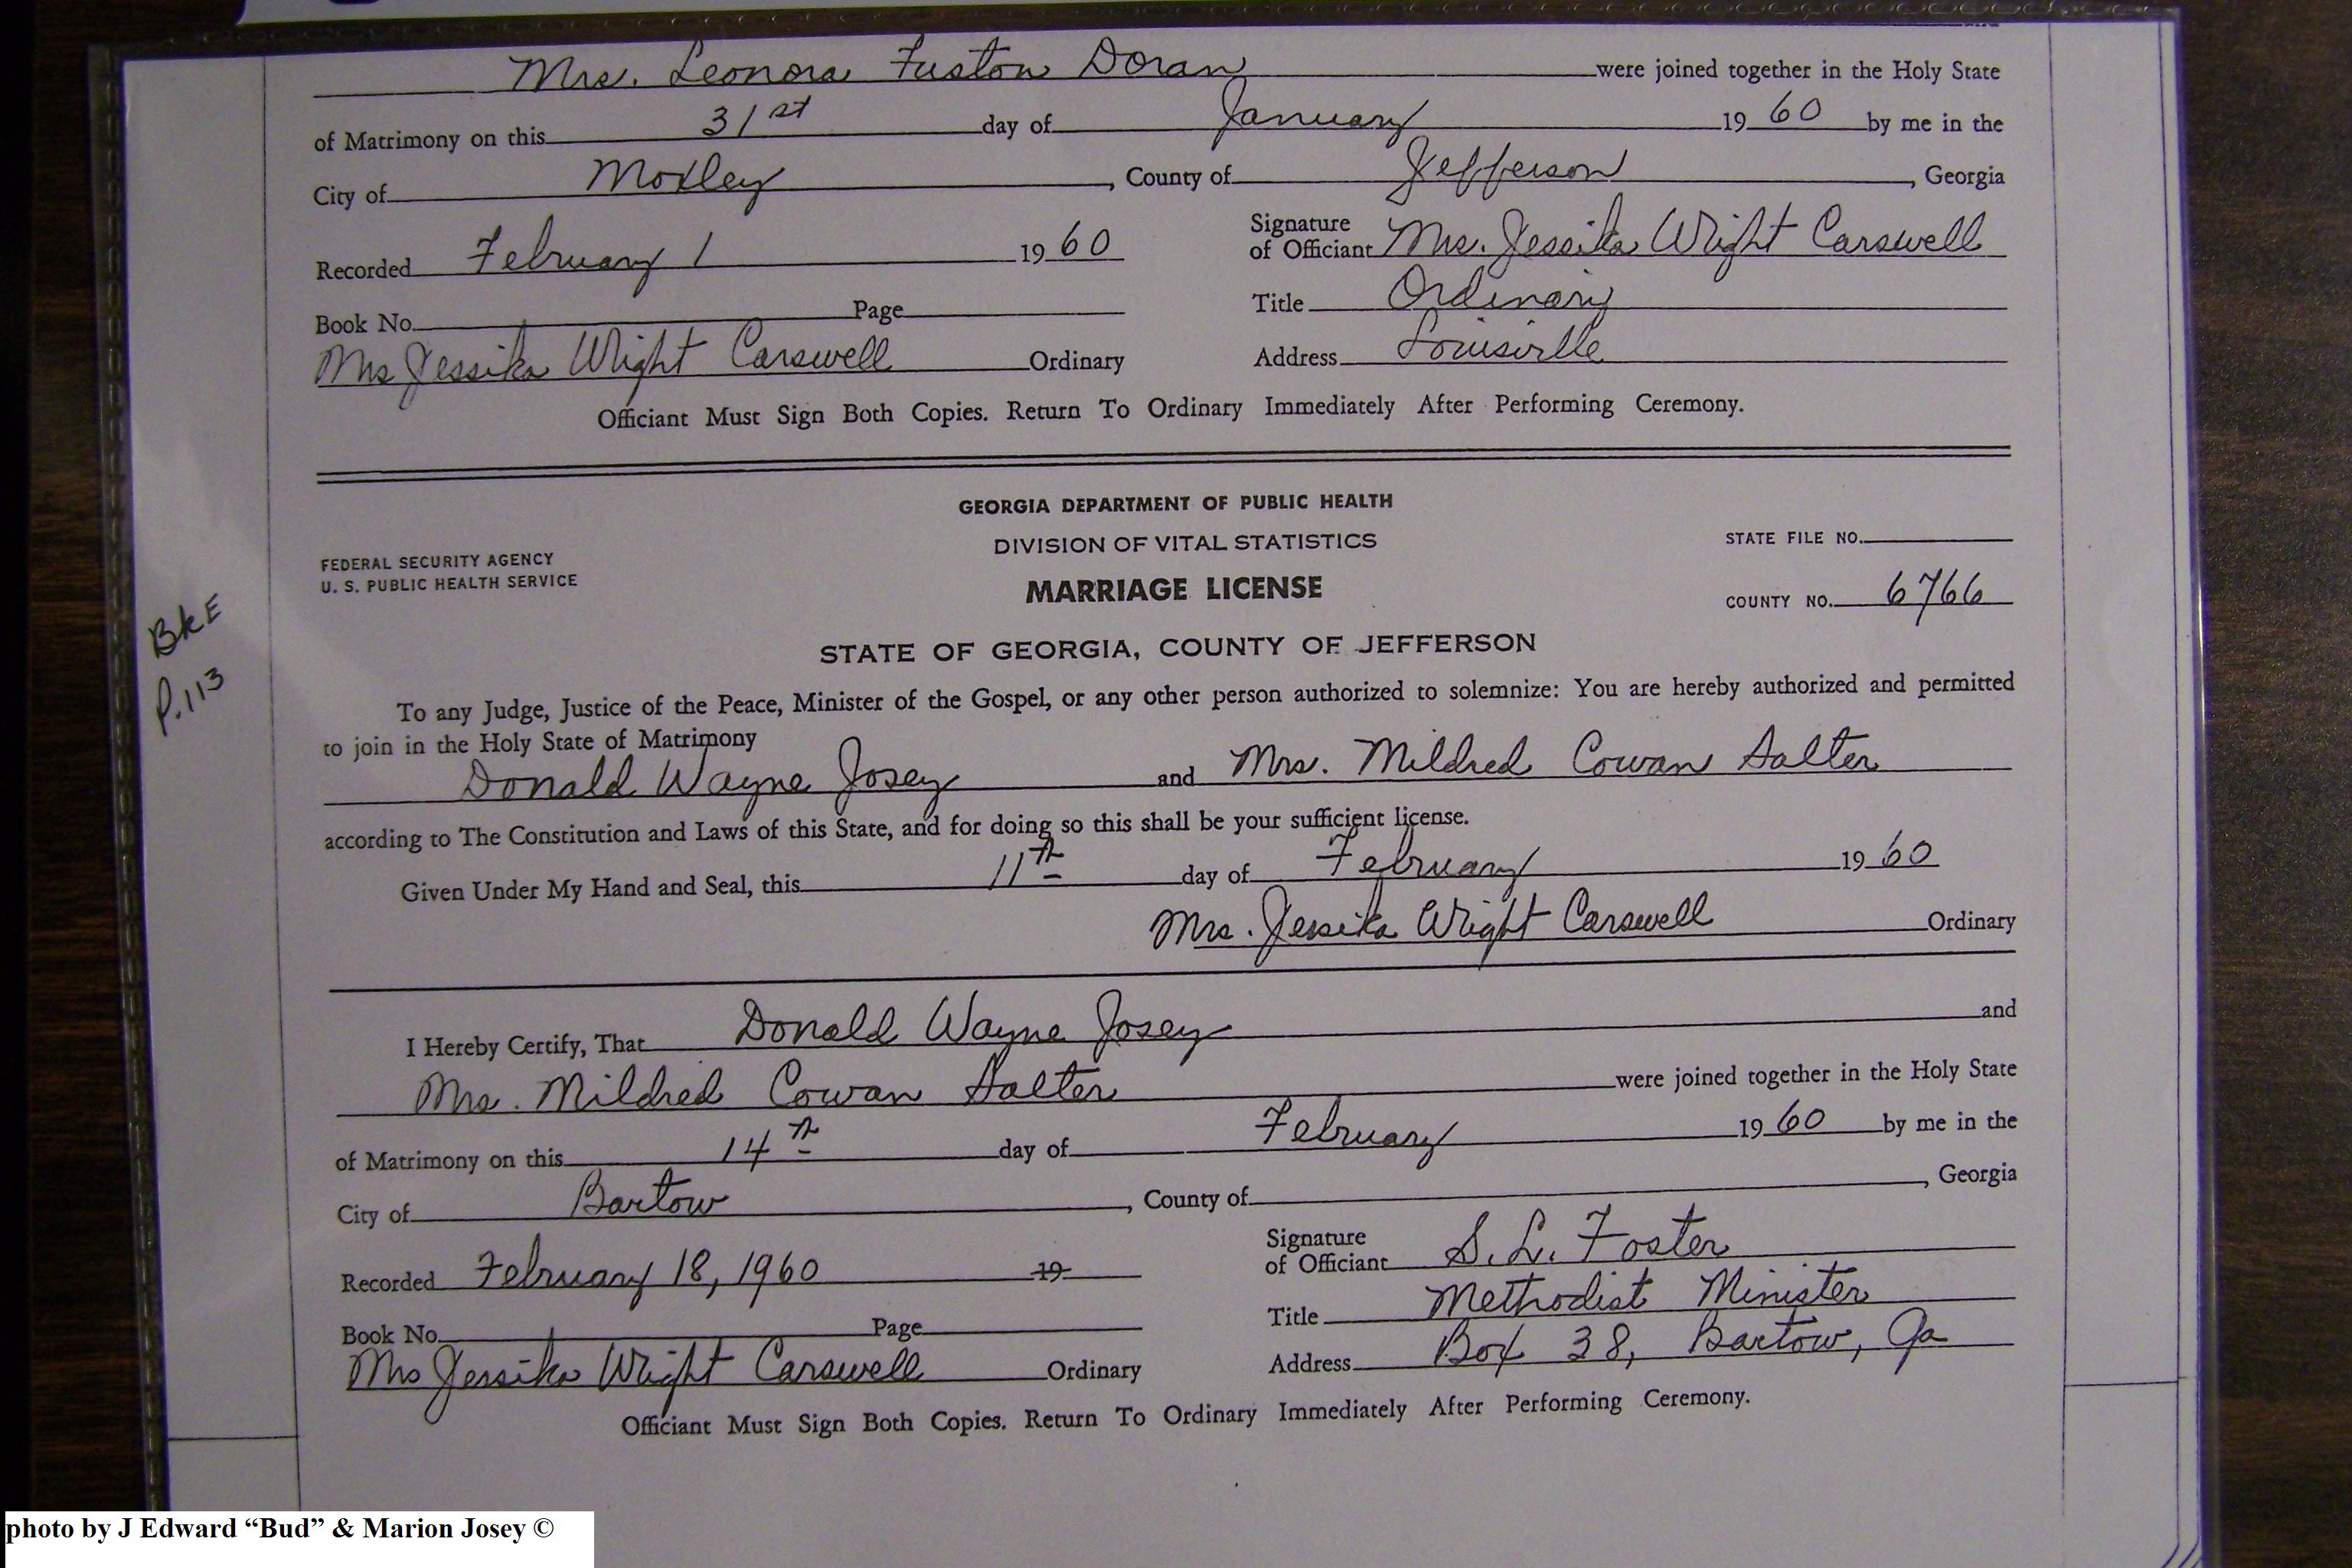 Mrs. Leonora Fuston Doran were joined together in the Holy State
of Matrimony on this 31st day of January 1960 by me in the
City of Moxley, County of Jefferson, Georgia
Recorded February 1 1960
Signature of Officiant Mrs. Jessika Wright Carswell
Book No. Page
Title Ordinary
Mrs Jessika Wright Carswell Ordinary
Address Louisville
Officiant Must Sign Both Copies. Return To Ordinary Immediately After Performing Ceremony.
GEORGIA DEPARTMENT OF PUBLIC HEALTH
DIVISION OF VITAL STATISTICS
MARRIAGE LICENSE
FEDERAL SECURITY AGENCY
U. S. PUBLIC HEALTH SERVICE
STATE FILE NO.
COUNTY NO. 6766
BkE
P.113
STATE OF GEORGIA, COUNTY OF JEFFERSON
To any Judge, Justice of the Peace, Minister of the Gospel, or any other person authorized to solemnize: You are hereby authorized and permitted
to join in the Holy State of Matrimony
Donald Wayne Josey and Mrs. Mildred Cowan Salter
according to The Constitution and Laws of this State, and for doing so this shall be your sufficient license.
Given Under My Hand and Seal, this 11th day of February 1960
Mrs. Jessika Wright Carswell Ordinary
I Hereby Certify, That Donald Wayne Josey and
Mrs. Mildred Cowan Salter were joined together in the Holy State
of Matrimony on this 14th day of February 1960 by me in the
City of Bartow, County of, Georgia
Recorded February 18, 1960 19
Signature of Officiant S. L. Foster
Book No. Page
Title Methodist Minister
Mrs Jessika Wright Carswell Ordinary
Address Box 38, Bartow, Ga
Officiant Must Sign Both Copies. Return To Ordinary Immediately After Performing Ceremony.
photo by J Edward “Bud” & Marion Josey ©